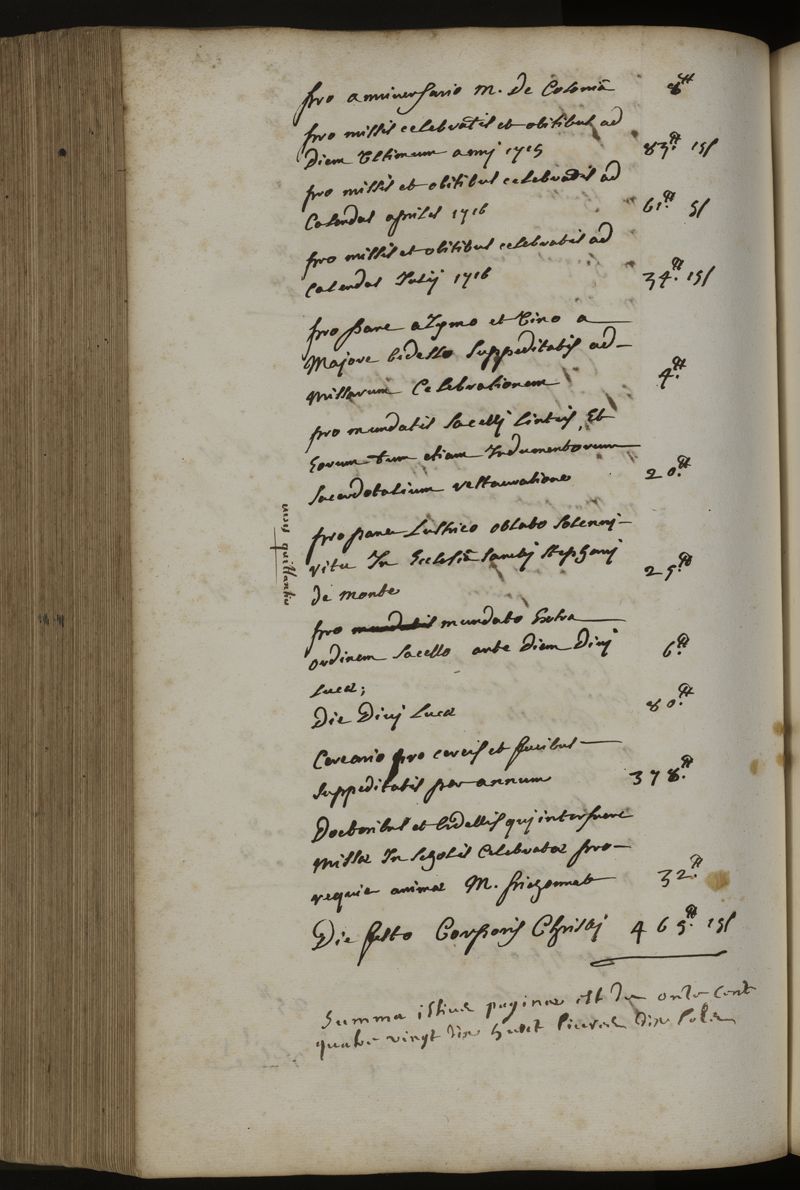 pro anniversario M. De Coloniâ 8tt
pro missis celebratis et obitibus ad
Diem Ultimum annj 1715 83tt 15s
pro missis et obitibus celebratis ad
Calendas apriles 1716 61tt 5s
pro missis et obitibus celebratis ad
Calendas Julij 1716 34tt 15s
pro pane azymo et Vino a
Majore bidello suppeditatis ad
Missarum Celebrationem 4tt
pro mundatis sacellj linteis, Et
Eorum tum etiam Indumentorum
sacerdotalium restauratione 20tt
pro pane Lustrico oblato solennj
ritu In Ecclesiâ sanctj stephanj
de monte 25tt
avec quittance
pro mundatis mundato Extra
ordinem sacello ante Diem Divj
Lucæ; 6tt
Die Divj Lucæ 80tt
Cereario pro cereis et facibus
suppeditatis per annum 378tt
Doctoribus et bidellis quj interfuere
Missæ In scholis Celebratæ pro
requie animæ M. friezonnet 32tt
Die festo Corporis Christj 465tt 15s
Summa istius paginæ est de onze cent
quatre vingt dix huit livres dix sols